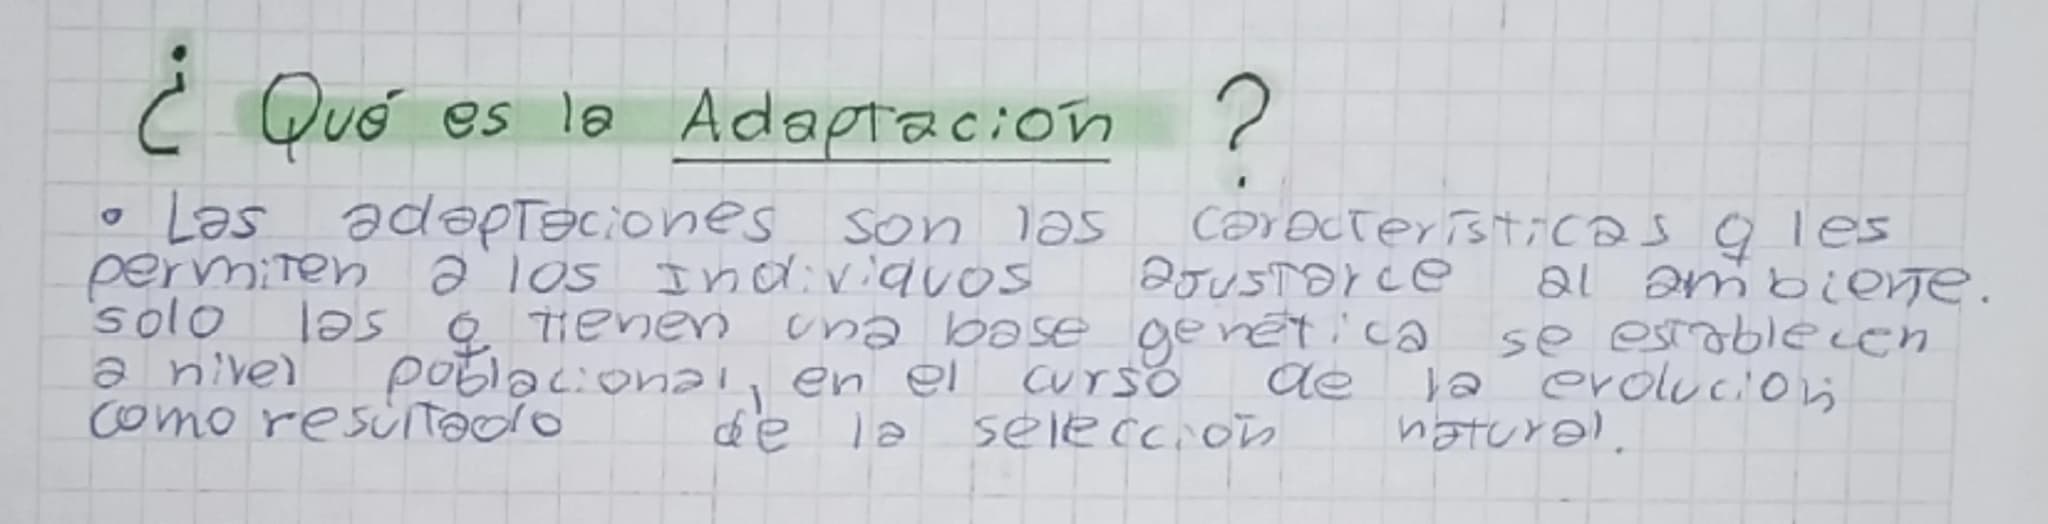 ¿Qué es la Adaptación?
• Las adaptaciones son las características q les
permiten a los Individuos ajustarce al ambiente.
solo las q tienen una base genética se establecen
a nivel poblacional, en el curso de la evolución
como resultado de la selección natural.